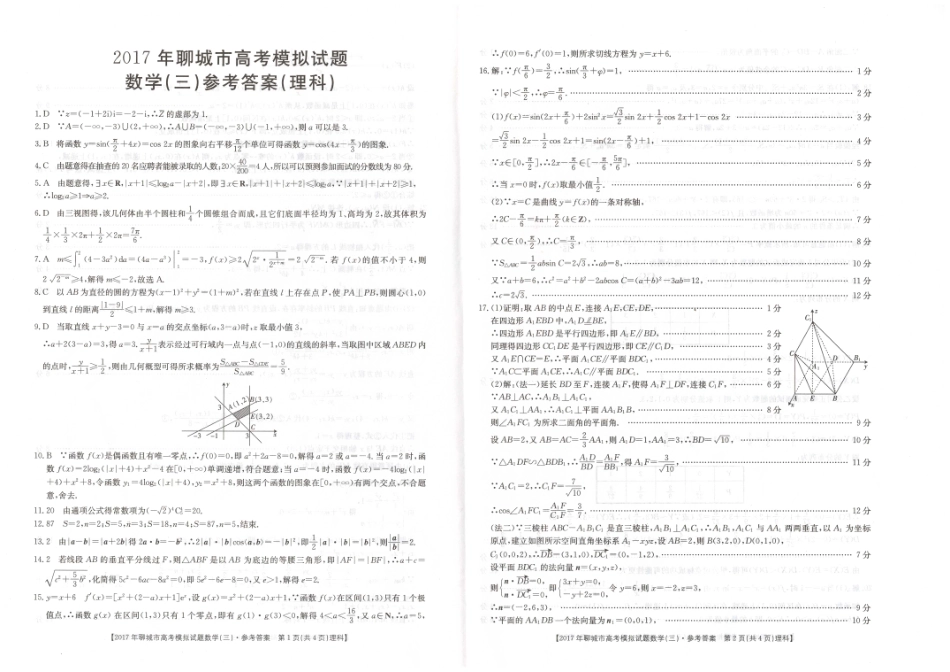 2017 年聊城市高考模拟试题
数学(三)参考答案(理科)
1.D ∵z=(-1+2i)i=-2-i,∴Z 的虚部为1.
2.D ∵A=(-∞,-3)∪(2,+∞),∴A∪B=(-∞,-3)∪(-1,+∞),则 a 可以是 3.
3.B 将函数 y=sin(π/2+4x)=cos 2x 的图象向右平移π/12个单位可得函数 y=cos(4x-π/3)的图象.
4.C 由题意得在抽查的 20 名应聘者能被录取的人数:20×40/200=4人,所以可以预测参加面试的分数线为 80 分.
5.A 由题意得,∃x∈R,|x+1|≤log₂a-|x+2|,即∃x∈R,|x+1|+|x+2|≤log₂a,∵|x+1|+|x+2|≥1,
∴log₂a≥1⇒a≥2.
6.D 由三视图得,该几何体由半个圆柱和1/4个圆锥组合而成,且它们底面半径均为 1、高均为 2,故其体积为
1/4×1/3×2π+1/2×2π=7π/6.
7.A m≤∫(4-3a²)da=(4a-a³)|=-3,f(x)≥2=2,若 f(x)的值不小于 4,则
2≥4,解得 m≤-2,故选 A.
8.C 以 AB 为直径的圆的方程为(x-1)²+y²=(1+m)²,若在直线 l 上存在点 P,使 PA⊥PB,则圆心(1,0)
到直线 l 的距离|1-9|/2≤1+m,解得 m≥3.
9.D 当取直线 x+y-3=0 与 x=a 的交点坐标(a,3-a)时,z 取最小值 3,
∴a+2(3-a)=3,得 a=3. y/(x+1)表示经过可行域内一点与点(-1,0)的直线的斜率,当取图中区域 ABED 内
的点时,y/(x+1)≥1/2,则由几何概型可得所求概率为=5/9.
y
3
A(1,2)
B(3,3)
E(3,2)
D
C
-3 -1
3
x
10.B ∵函数 f(x)是偶函数且有唯一零点,∴f(0)=0,即 a²+2a-8=0,解得 a=2 或 a=-4. 当 a=2 时,函
数 f(x)=2log₂(|x|+4)+x²-4 在[0,+∞)单调递增,符合题意;当 a=-4 时,函数 f(x)=-4log₂(|x|
+4)+x²+8,令函数 y₁=4log₂(|x|+4),y₂=x²+8,则这两个函数的图象在[0,+∞)有两个交点,不合题
意,舍去.
11.20 由通项公式得常数项为=20.
12.87 S=2,n=2;S=5,n=3;S=18,n=4;S=87,n=5,结束.
13.2 由|a-b|=|a+2b|得 2a·b=-b²,∴2|a|·|b|cos⟨a,b⟩=-|b|²,即1/2|a|·|b|=|b|²,则|a|/|b|=2.
14.2 若线段 AB 的垂直平分线过 F,则△ABF 是以 AB 为底边的等腰三角形,即|AF|=|BF|,∴a+c=
,化简得 5c²-6ac-8a²=0,即 5e²-6e-8=0,又 e>1,解得 e=2.
15.y=x+6 f′(x)=[x²+(2-a)x+1]eˣ,设 g(x)=x²+(2-a)x+1,∵函数 f(x)在区间(1,3)只有 1 个极
值点,∴函数 g(x)在区间(1,3)只有 1 个零点,即有 g(1)·g(3)<0,解得 4<a<16/3,又 a∈N,∴a=5,
【2017 年聊城市高考模拟试题数学(三)·参考答案 第 1 页(共 4 页)理科】
∴f(0)=6,f′(0)=1,则所求切线方程为 y=x+6.
16.解:∵f(π/6)=3/2,∴sin(π/3+φ)=1, 1 分
∵|φ|<π/2,∴φ=π/6. 2 分
(1)f(x)=sin(2x+π/6)+2sin²x=√3/2 sin 2x+1/2 cos 2x+1-cos 2x 3 分
=√3/2 sin 2x-1/2 cos 2x+1=sin(2x-π/6)+1, 4 分
∵x∈[0,π/2],∴2x-π/6∈[-π/6,5π/6], 5 分
∴当 x=0 时,f(x)取最小值1/2. 6 分
(2)∵x=C 是曲线 y=f(x)的一条对称轴,
∴2C-π/6=kπ+π/2(k∈Z), 7 分
又 C∈(0,π/2),∴C=π/3, 8 分
∵S△ABC=1/2absin C=2√3,∴ab=8, 10 分
又∵a+b=6,∴c²=a²+b²-2abcos C=(a+b)²-3ab=12, 11 分
∴c=2√3. 12 分
17.(1)证明:取 AB 的中点 E,连接 A₁E,CE,DE, 1 分
在四边形 A₁EBD 中,A₁D⊥BE,
∴四边形 A₁EBD 是平行四边形,即 A₁E∥BD, 2 分
同理得四边形 CC₁DE 是平行四边形,即 CE∥C₁D, 3 分
又 A₁E∩CE=E,∴平面 A₁CE∥平面 BDC₁, 4 分
∵A₁C⊂平面 A₁CE,∴A₁C∥平面 BDC₁. 5 分
(2)解:(法一)延长 BD 至 F,连接 A₁F,使得 A₁F⊥DF,连接 C₁F, 6 分
∵AB⊥AC,∴A₁B₁⊥A₁C₁,
又 A₁C₁⊥AA₁,∴A₁C₁⊥平面 AA₁B₁B, 8 分
则∠A₁FC₁ 为所求二面角的平面角. 9 分
设 AB=2,又 AB=AC=2/3AA₁,则 A₁D=1,AA₁=3,∴BD=√10, 10 分
∵△A₁DF∽△BDB₁,∴A₁D/BD=A₁F/BB₁,得 A₁F=3/√10, 11 分
∵A₁C₁=2,∴C₁F=7/√10,
∴cos∠A₁FC₁=A₁F/C₁F=3/7. 12 分
(法二)∵三棱柱 ABC-A₁B₁C₁ 是直三棱柱,A₁B₁⊥A₁C₁,∴A₁B₁,A₁C₁ 与 AA₁ 两两垂直,以 A₁ 为坐标
原点,建立如图所示空间直角坐标系 A₁-xyz,设 AB=2,则 B(3,2,0),D(0,1,0),
C₁(0,0,2),∴DB=(3,1,0),DC₁=(0,-1,2), 7 分
设平面 BDC₁ 的法向量 n=(x,y,z),
则{n·DB=0,n·DC₁=0, 即{3x+y=0,-y+2z=0, 令 y=6,则 x=-2,z=3,
∴n=(-2,6,3), 9 分
∵平面的 AA₁DB 一个法向量为 n₁=(0,0,1), 10 分
【2017 年聊城市高考模拟试题数学(三)·参考答案 第 2 页(共 4 页)理科】